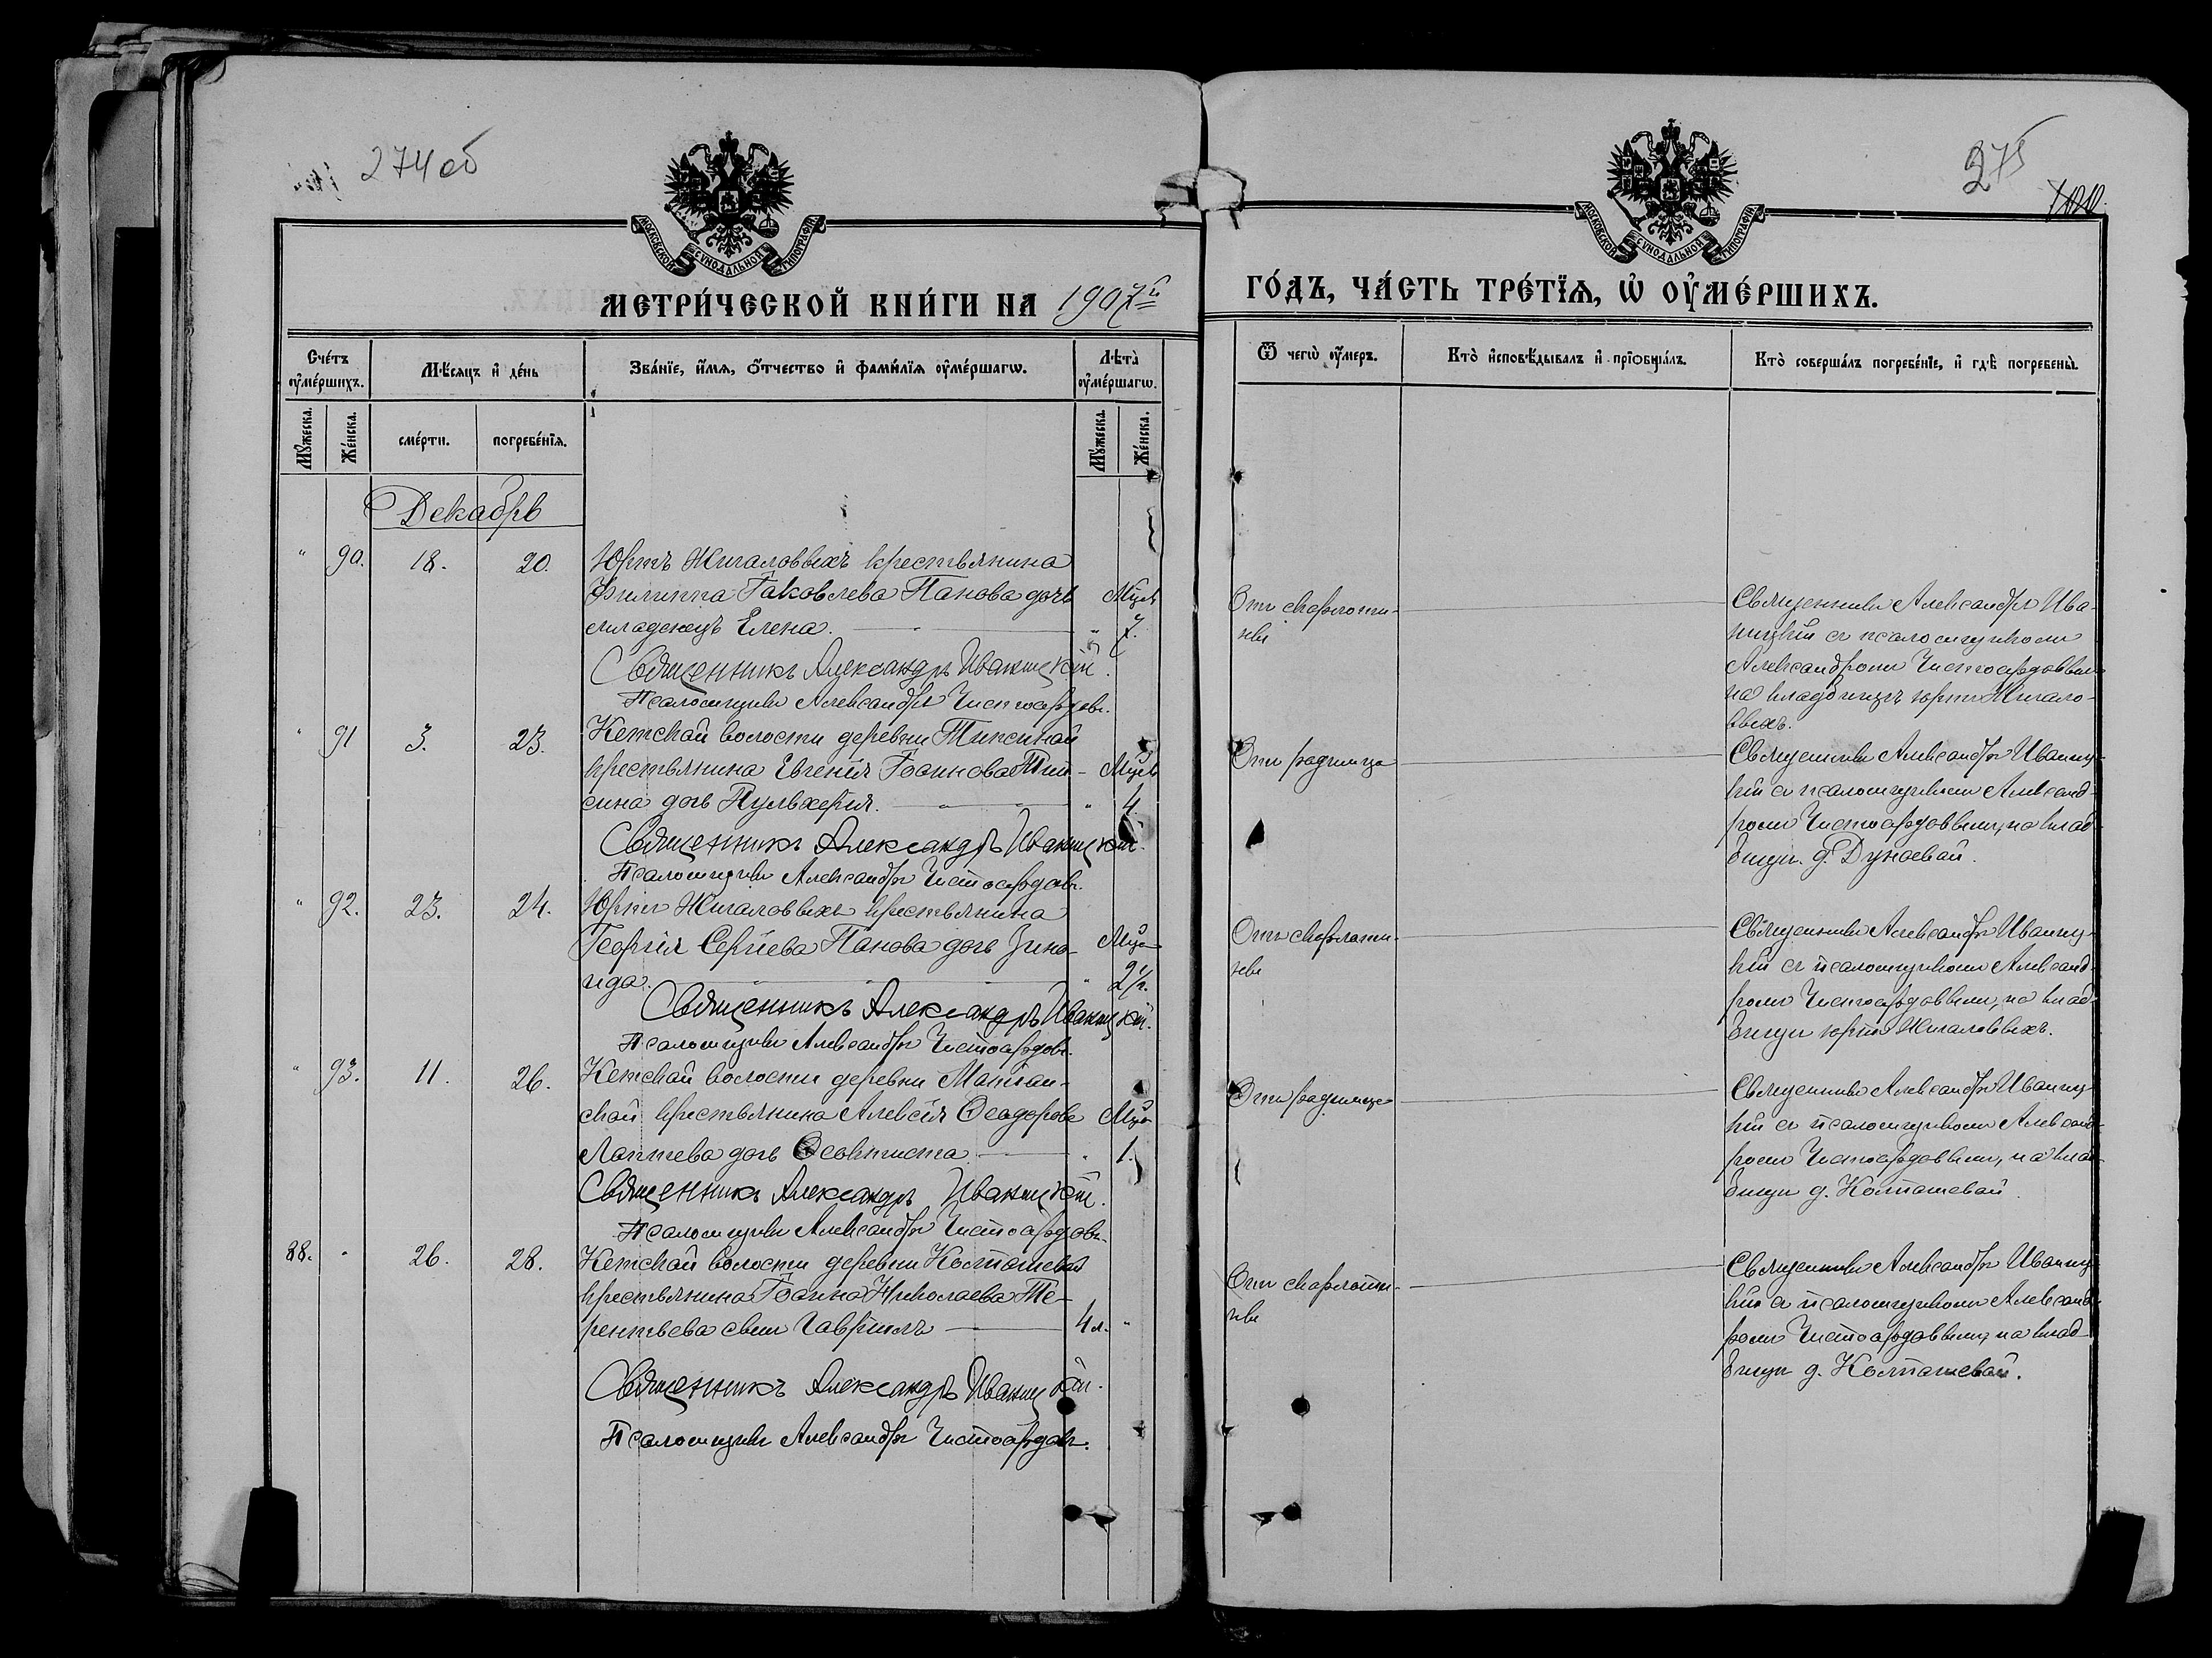 274 об
МОСКОВСКОЙ СѴНОДАЛЬНОЙ ТИПОГРАФІИ
МЕТРИ́ЧЕСКОЙ КНИ́ГИ НА 1907й
Сче́тъ оу҆ме́ршихъ.
Мѣ́сяцъ и҆ де́нь
Зва́нїе, и҆́мѧ, ѻ҆́тчество и҆ фами́лїѧ оу҆ме́ршагѡ.
Лѣ́та оу҆ме́ршагѡ.
Мꙋ́жеска. Же́нска.
сме́рти. погребе́нїѧ.
Мꙋ́жеска. Же́нска.
Декабрь
" 90. 18. 20. Юртъ Жигаловыхъ крестьянина
Филиппа Іаковлева Панова дочь Мцев
младенецъ Елена. " 7.
Священникъ Александръ Иваницкій.
Псаломщикъ Александръ Чистосердовъ.
" 91 3. 23. Кетской волости деревни Типсиной
крестьянина Евгенія Іоаннова Тип- Мцев
сина дочь Пульхерія. " 4.
Священникъ Александръ Иваницкій.
Псаломщикъ Александръ Чистосердовъ.
" 92. 23. 24. Юртъ Жигаловыхъ крестьянина
Георгія Сергіева Панова дочь Зина-
ида. " 2 г.
Священникъ Александръ Иваницкій.
Псаломщикъ Александръ Чистосердовъ.
" 93. 11. 26. Кетской волости деревни
ской крестьянина Алексія Ѳеодорова
Лаптева дочь Ѳеоктиста " 1.
Священникъ Александръ Иваницкій.
Псаломщикъ Александръ Чистосердовъ.
88. " 26. 28. Кетской волости деревни Колпашевой
крестьянина Іоанна Николаева Те-
рентьева сынъ Гавріилъ 4 л. "
Священникъ Александръ Иваницкій.
Псаломщикъ Александръ Чистосердовъ.
275
МОСКОВСКОЙ СѴНОДАЛЬНОЙ ТИПОГРАФІИ
ГО́ДЪ, ЧА́СТЬ ТРЕ́ТЇѦ, Ѡ҆ ОУ҆МЕ́РШИХЪ.
Ѿ чегѡ̀ оу҆́меръ.
Кто̀ и҆сповѣ́дывалъ и҆ прїѻбща́лъ.
Кто̀ соверша́лъ погребе́нїе, и҆ гдѣ̀ погребены̀.
Отъ скарлати-
ны
Священникъ Александръ Ива-
ницкій съ псаломщикомъ
Александромъ Чистосердовымъ
на кладбищѣ юртъ Жигало-
выхъ.
Отъ родимца
Священникъ Александръ Иваниц-
кій съ псаломщикомъ Александ-
ромъ Чистосердовымъ, на клад-
бищѣ д. Дунаевой.
Отъ скарлати-
ны
Священникъ Александръ Иваниц-
кій съ псаломщикомъ Александ-
ромъ Чистосердовымъ, на клад-
бищѣ юртъ Жигаловыхъ.
Отъ родимца
Священникъ Александръ Иваниц-
кій съ псаломщикомъ Александ-
ромъ Чистосердовымъ, на клад-
бищѣ д. Колпашевой.
Отъ скарлати-
ны
Священникъ Александръ Иваниц-
кій съ псаломщикомъ Александ-
ромъ Чистосердовымъ, на клад-
бищѣ д. Колпашевой.